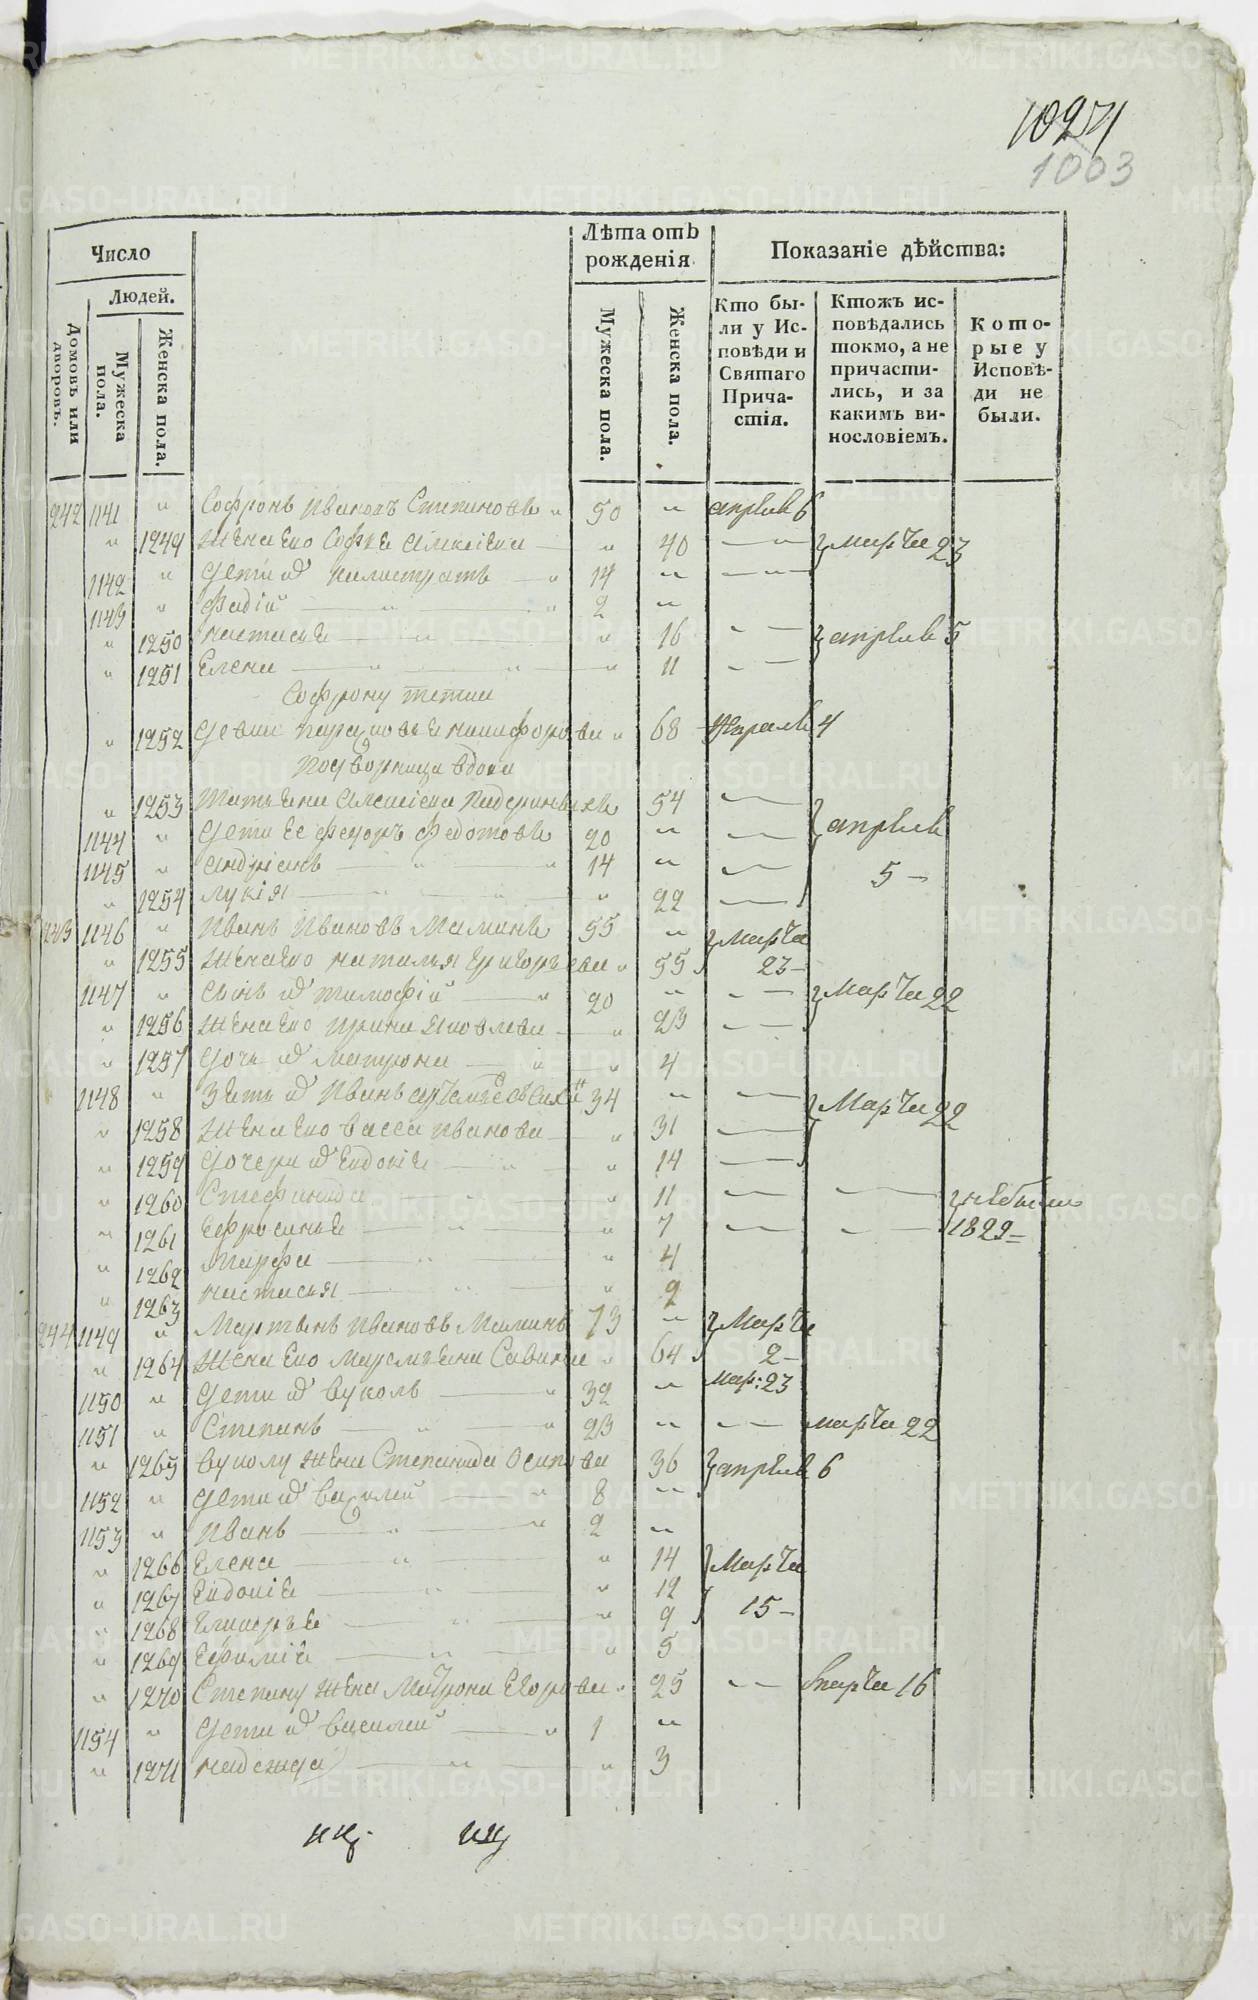 1027
1003
Число
Лѣта отъ рожденія.
Показаніе дѣйства:
Людей.
Домовъ или дворовъ.
Мужеска пола.
Женска пола.
Мужеска пола.
Женска пола.
Кто были у Исповѣди и Святаго Причастія.
Ктожъ исповѣдались токмо, а не причастились, и за какимъ винословіемъ.
Которые у Исповѣди не были.
242 1141 " Софронъ Ивановъ " 50 " апреля 6
" 1249 Жена его Софья Алексіева " 40 — " — марта 23
1142 " Дети ихъ Калистратъ " 14 " — " —
1143 " Фадій " " 2 "
" 1250 Настасья " " 16 — " — апреля 5
" 1251 Елена " " " 11 — " —
Софрону тетка
" 1252 Девка Никифорова " 68 апреля 4
Подворница вдова
" 1253 Татьяна Алексіева 54 —
1144 " Дети ее Федоръ Федотовъ 20 " — апреля
1145 " Андріанъ " " 14 " — 5 —
" 1254 Лукія " " " 22 —
243 1146 " Иванъ Ивановъ Маминъ 55 " Марта
" 1255 Жена его Наталья Григорьева " 55 23 —
1147 " Сынъ их Тимофій " 20 " — " — Марта 22
" 1256 Жена его Ирина Яковлева " 23 — " —
" 1257 Дочь их Матрона " " 4
1148 " Зять их Иванъ 34 " — " — Марта 22
" 1258 Жена его Васса Иванова " 31 —
" 1259 Дочери их Евдокія " " 14 —
" 1260 Степанида " " 11 — — не были
" 1261 Ефросинья " " 7 — — 1829 —
" 1262 Марфа " " 4
" 1263 Настасья " " 2
244 1149 " Мартынъ Ивановъ Маминъ 73 " Марта
" 1264 Жена его Маремьяна Савина " 64 2 —
1150 " Дети их Вуколъ " 32 " Мар: 23
1151 " Степанъ " " 23 " — " — марта 22
" 1265 Вуколу жена Степанида Осипова 36 апреля 6
1152 " Дети их Василей " 8 "
1153 " Иванъ " " 2 "
" 1266 Елена " " 14 Марта
" 1267 Евдокія " " 12 15 —
" 1268 Гликерья " " 9
" 1269 Ефимія " " " 5
" 1270 Степану жена Матрона Егорова " 25 — " — марта 16
1154 " Дети их Василей " 1 "
" 1271 Надежда " " 3